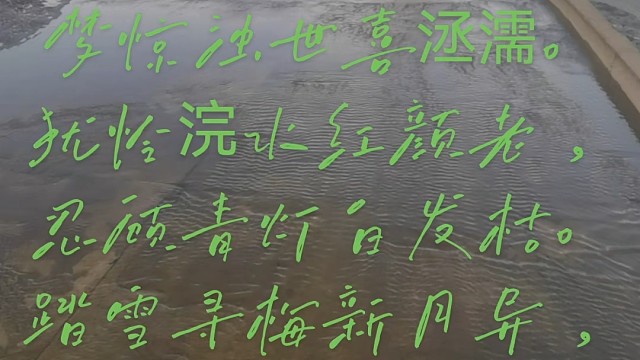 梦惊浊世喜洆濡。
犹怜浣水红颜老，
忍顾青灯白发枯。
踏雪寻梅新月异，